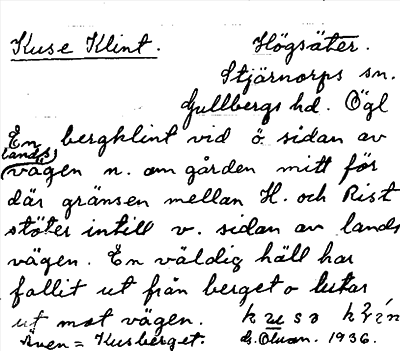 Kuse Klint. Högsäter.
Stjärnorps sn.
Gullbergs hd. Ögl
En bergklint vid ö. sidan av
(lands)
vägen n. om gården mitt för
där gränsen mellan H. och Rist
stöter intill v. sidan av lands
vägen. En väldig häll har
fallit ut från berget o lutar
ut mot vägen.
Även = Kusberget. 1936.